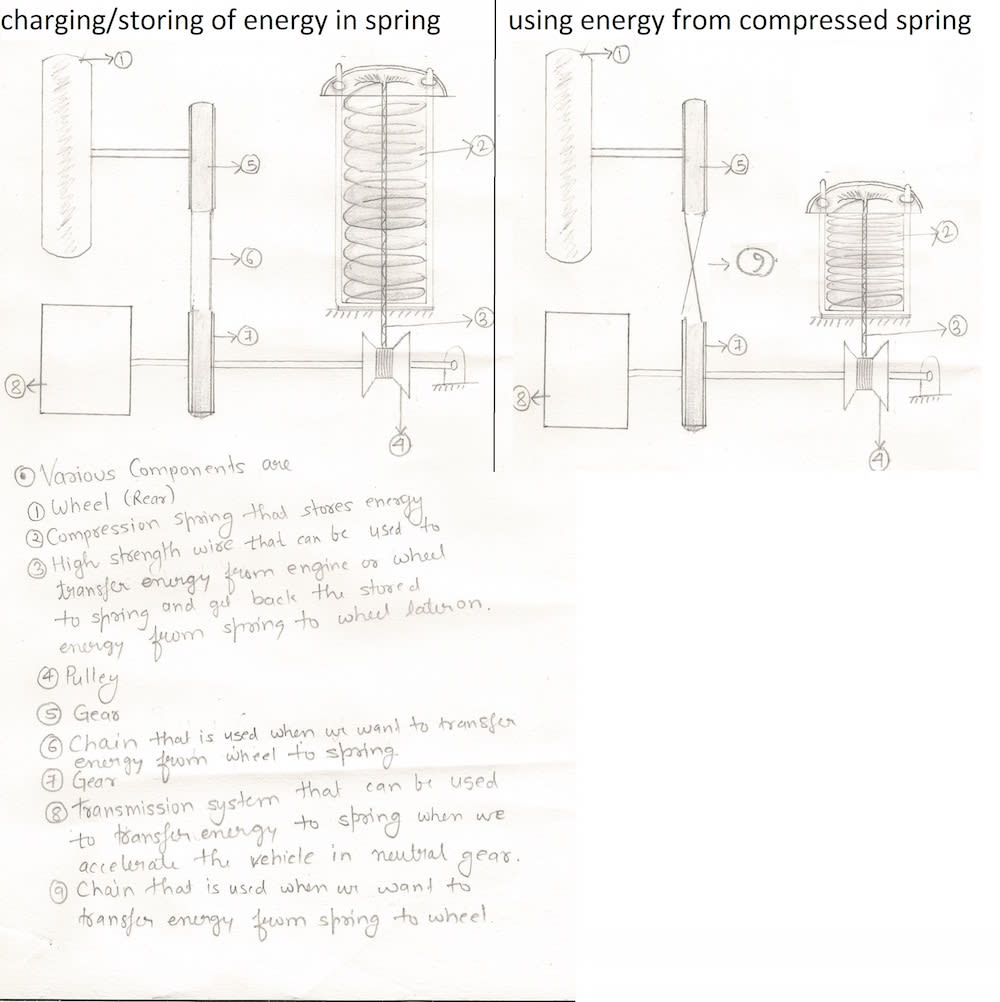 charging/storing of energy in spring
using energy from compressed spring
1
5
2
6
3
7
8
4
1
5
2
9
3
7
8
4
Various Components are
① Wheel (Rear)
② Compression spring that stores energy
③ High strength wire that can be used to
transfer energy from engine or wheel
to spring and get back the stored
energy from spring to wheel later on.
④ Pulley
⑤ Gear
⑥ Chain that is used when we want to transfer
energy from wheel to spring
⑦ Gear
⑧ transmission system that can be used
to transfer energy to spring when we
accelerate the vehicle in neutral gear.
⑨ Chain that is used when we want to
transfer energy from spring to wheel.